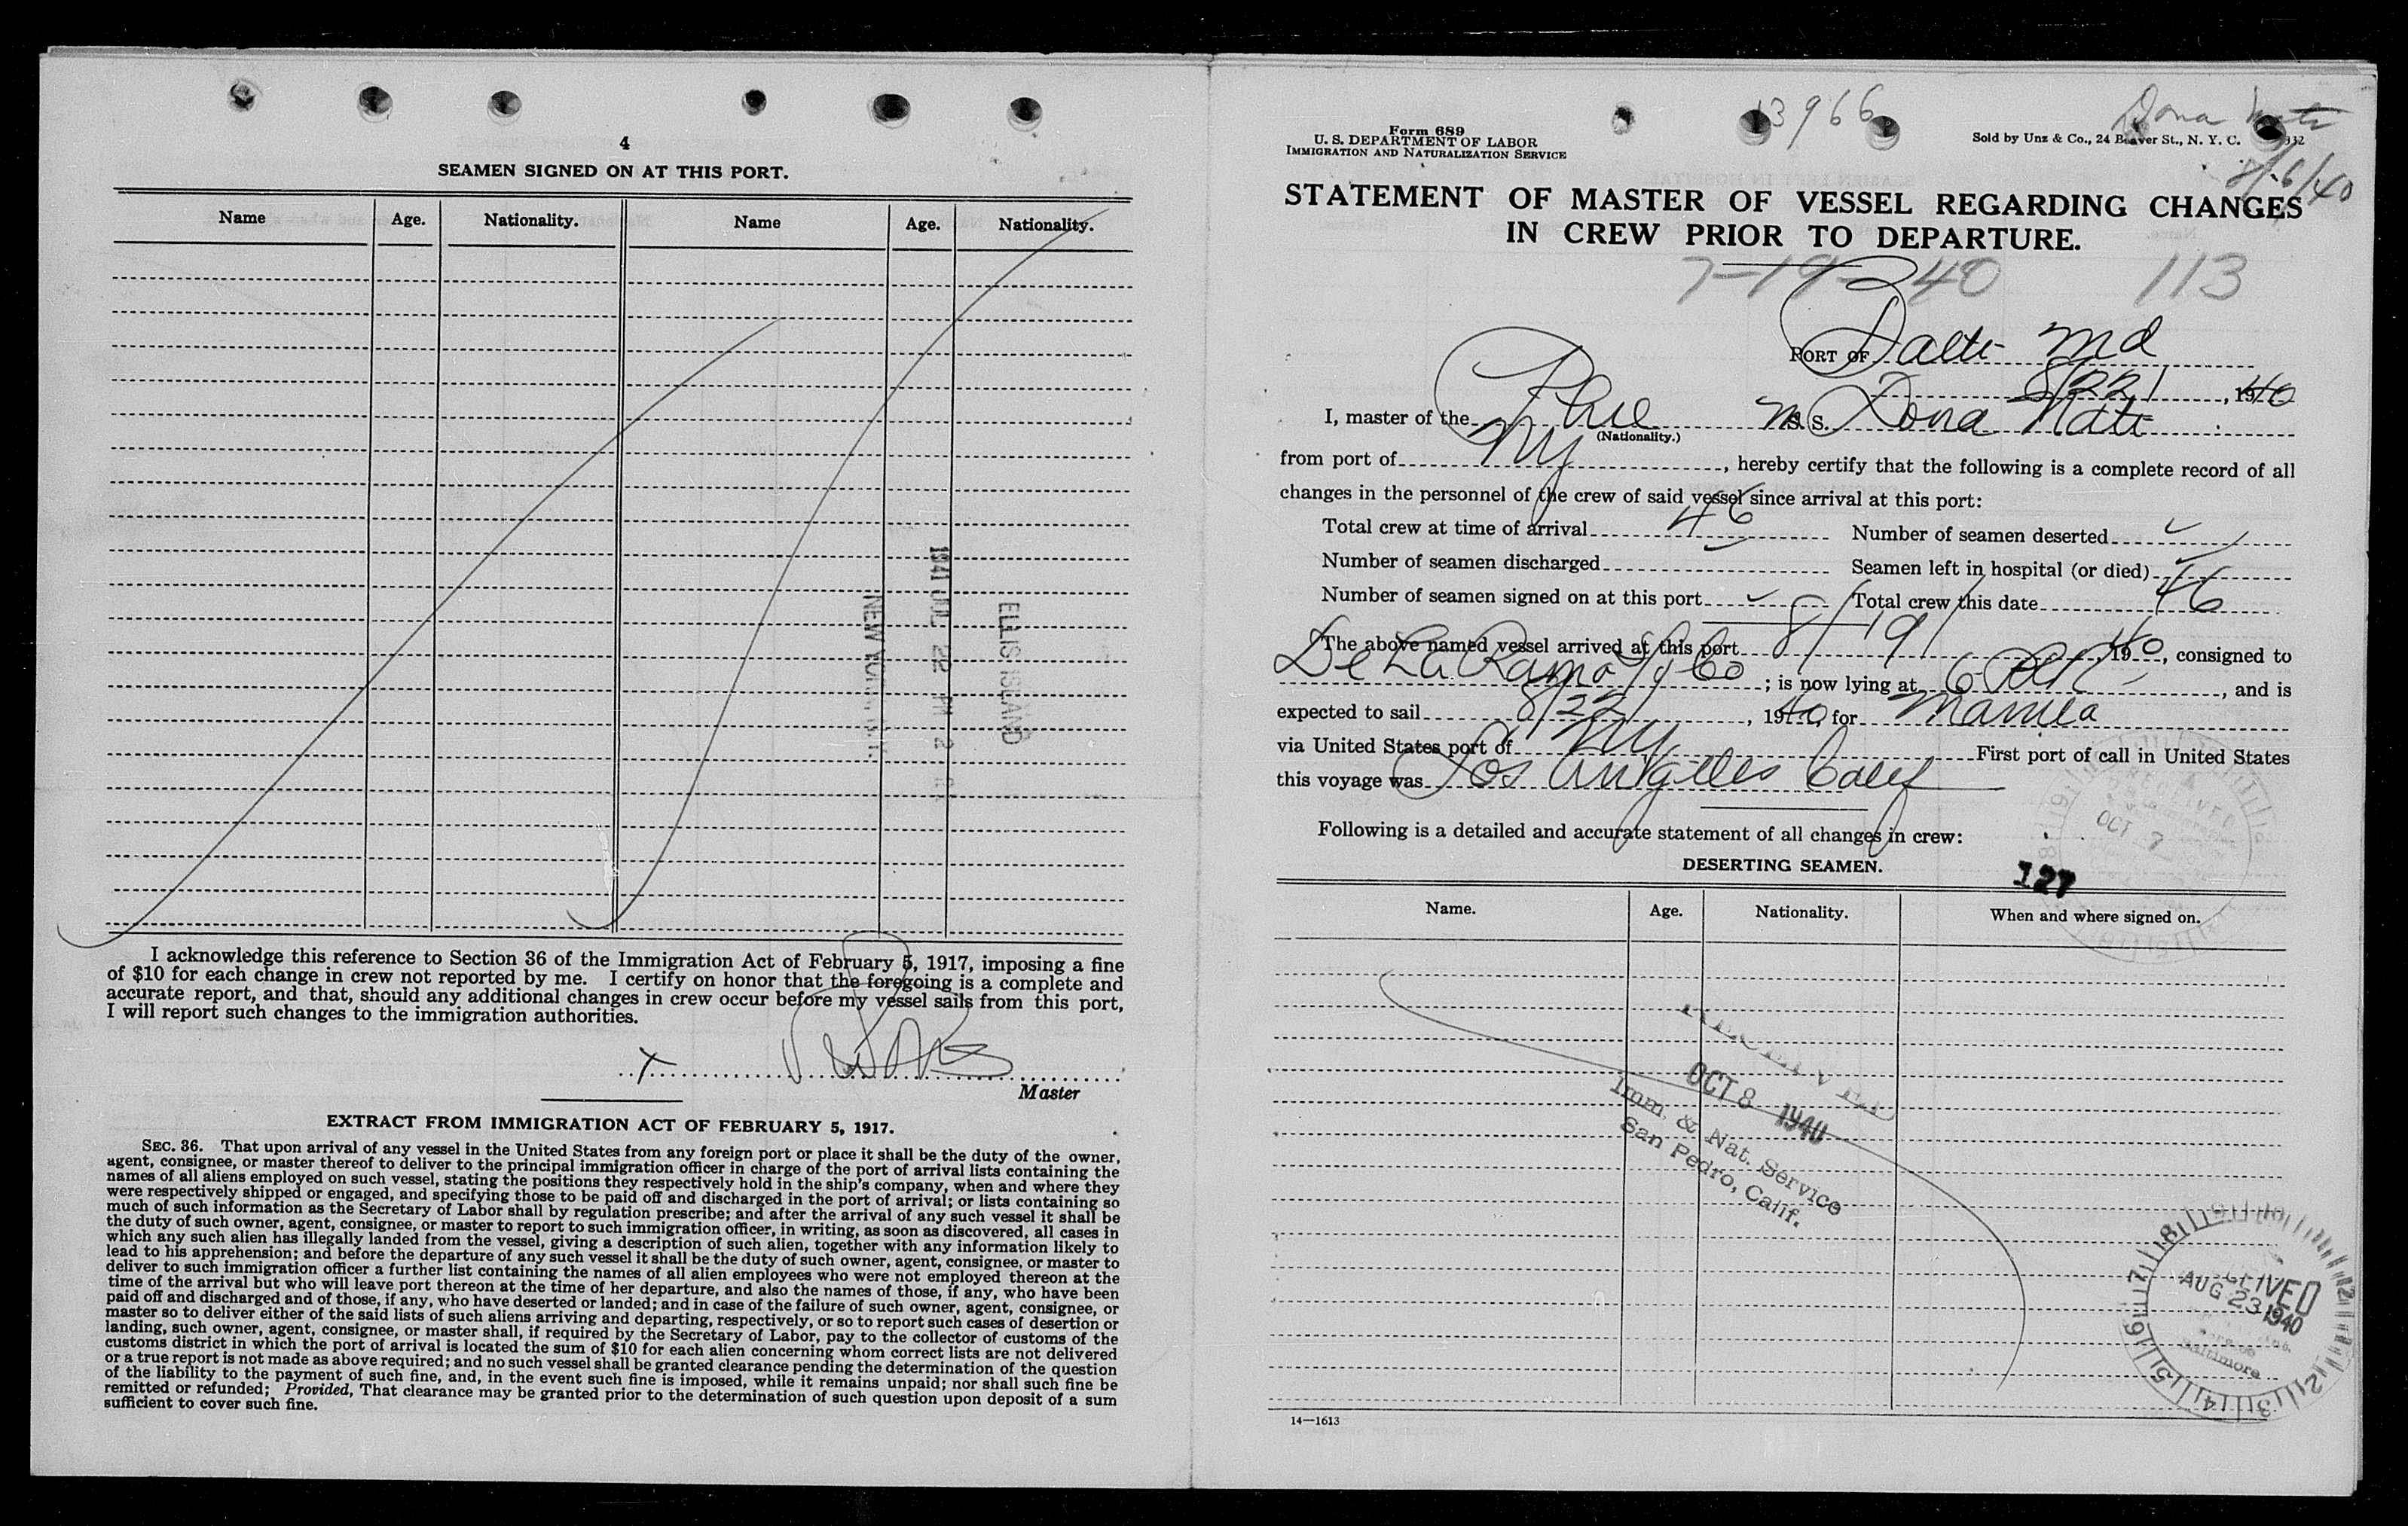 4
SEAMEN SIGNED ON AT THIS PORT.
Name Age. Nationality. Name Age. Nationality.
ELLIS ISLAND
1941 JUL 22 PM 2
NEW YORK, N.Y.
I acknowledge this reference to Section 36 of the Immigration Act of February 5, 1917, imposing a fine
of $10 for each change in crew not reported by me. I certify on honor that the foregoing is a complete and
accurate report, and that, should any additional changes in crew occur before my vessel sails from this port,
I will report such changes to the immigration authorities.
X
Master
EXTRACT FROM IMMIGRATION ACT OF FEBRUARY 5, 1917.
SEC. 36. That upon arrival of any vessel in the United States from any foreign port or place it shall be the duty of the owner,
agent, consignee, or master thereof to deliver to the principal immigration officer in charge of the port of arrival lists containing the
names of all aliens employed on such vessel, stating the positions they respectively hold in the ship's company, when and where they
were respectively shipped or engaged, and specifying those to be paid off and discharged in the port of arrival; or lists containing so
much of such information as the Secretary of Labor shall by regulation prescribe; and after the arrival of any such vessel it shall be
the duty of such owner, agent, consignee, or master to report to such immigration officer, in writing, as soon as discovered, all cases in
which any such alien has illegally landed from the vessel, giving a description of such alien, together with any information likely to
lead to his apprehension; and before the departure of any such vessel it shall be the duty of such owner, agent, consignee, or master to
deliver to such immigration officer a further list containing the names of all alien employees who were not employed thereon at the
time of the arrival but who will leave port thereon at the time of her departure, and also the names of those, if any, who have been
paid off and discharged and of those, if any, who have deserted or landed; and in case of the failure of such owner, agent, consignee, or
master so to deliver either of the said lists of such aliens arriving and departing, respectively, or so to report such cases of desertion or
landing, such owner, agent, consignee, or master shall, if required by the Secretary of Labor, pay to the collector of customs of the
customs district in which the port of arrival is located the sum of $10 for each alien concerning whom correct lists are not delivered
or a true report is not made as above required; and no such vessel shall be granted clearance pending the determination of the question
of the liability to the payment of such fine, and, in the event such fine is imposed, while it remains unpaid; nor shall such fine be
remitted or refunded; Provided, That clearance may be granted prior to the determination of such question upon deposit of a sum
sufficient to cover such fine.
13966
Dona Nati
8/6/40
Form 689
U. S. DEPARTMENT OF LABOR
IMMIGRATION AND NATURALIZATION SERVICE
Sold by Unz & Co., 24 Beaver St., N. Y. C.
STATEMENT OF MASTER OF VESSEL REGARDING CHANGES
IN CREW PRIOR TO DEPARTURE.
7-19-40 113
PORT OF Balto Md
8/22/, 1940
I, master of the Phil M S. S. Dona Nati
(Nationality.)
from port of NY, hereby certify that the following is a complete record of all
changes in the personnel of the crew of said vessel since arrival at this port:
Total crew at time of arrival 46 Number of seamen deserted ✓
Number of seamen discharged ✓ Seamen left in hospital (or died) ✓
Number of seamen signed on at this port ✓ Total crew this date 46
The above named vessel arrived at this port 8/19/, 1940, consigned to
De La Rama SS Co; is now lying at 6 PRR, and is
expected to sail 8/22/, 1940, for Manila
via United States port of NY First port of call in United States
this voyage was Los Angeles Calif
Following is a detailed and accurate statement of all changes in crew:
RECEIVED
OCT 7
DESERTING SEAMEN.
127
Name. Age. Nationality. When and where signed on.
RECEIVED
OCT 8 1940
Imm. & Nat. Service
San Pedro, Calif.
RECEIVED
AUG 23 1940
Baltimore
14—1613